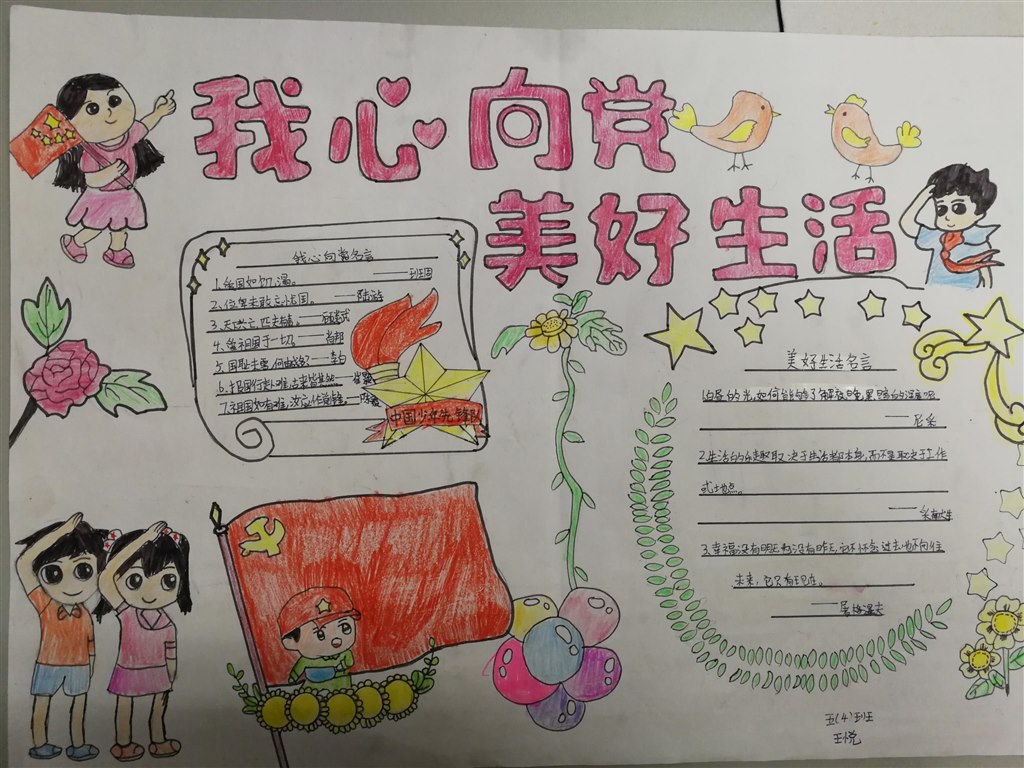 我心向党
美好生活
我心向党名言
1.爱国如饥渴。——班固
2.位卑未敢忘忧国。——陆游
3.天下兴亡,匹夫有责。——顾炎武
4.爱祖国高于一切。——肖邦
5.国耻未雪,何由成名?——李白
6.报国行赴难,古来皆共然——崔颢
7.祖国如有难,汝应作前锋。——陈毅
中国少年先锋队
美好生活名言
白昼的光,如何能够了解夜晚黑暗的深度呢
——尼采
2.生活的乐趣取决于生活者本身,而不是取决于工作
或地点。
——爱默生
3.幸福没有明天,也没有昨天,它不怀念过去,也不向往
未来,它只有现在。
——屠格涅夫
五(4)班
王悦